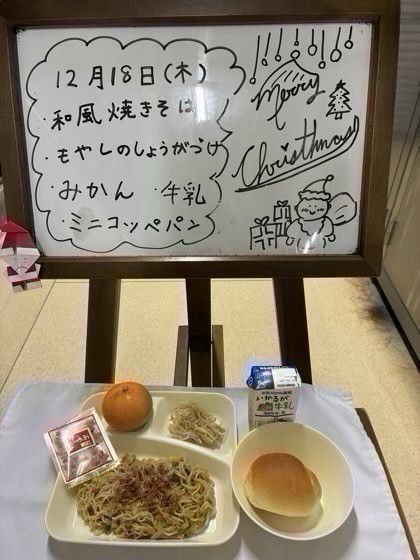 12月18日(木)
・和風焼きそば
・もやしのしょうがづけ
・みかん ・牛乳
・ミニコッペパン
Merry
Christmas
いかるが
牛乳